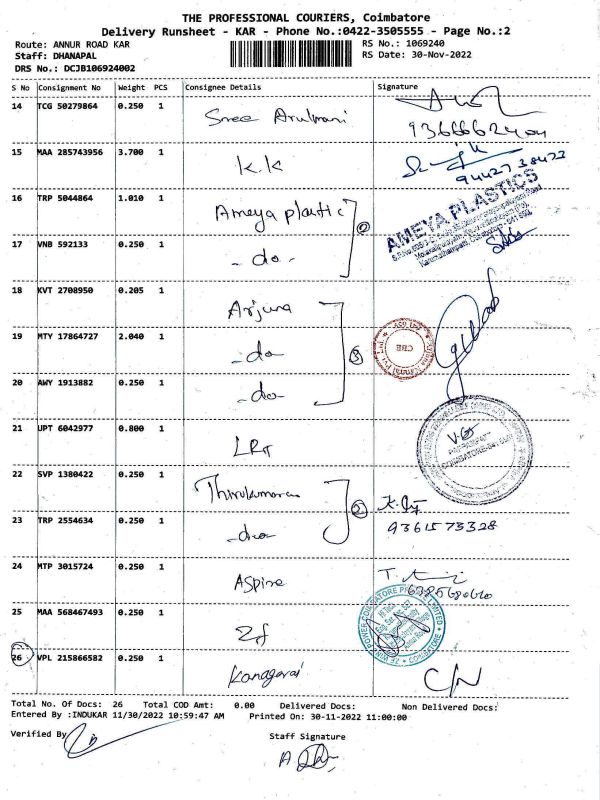 THE PROFESSIONAL COURIERS, Coimbatore
Delivery Runsheet - KAR - Phone No.:0422-3505555 - Page No.:2
Route: ANNUR ROAD KAR RS No.: 1069240
Staff: DHANAPAL RS Date: 30-Nov-2022
DRS No.: DCJB106924002
S No Consignment No Weight PCS Consignee Details Signature
14 TCG 50279864 0.250 1 Sree Arulmani
15 MAA 285743956 3.700 1 K.K
9442738473
16 TRP 5044864 1.010 1 Ameya plastic
AMEYA PLASTICS
17 VNB 592133 0.250 1 - do - 2
18 KVT 2708950 0.205 1 Arjuna
19 MTY 17864727 2.040 1 - do 3
CBE
20 AWY 1913882 0.250 1 - do -
21 UPT 6042977 0.800 1 LRT
22 SVP 1380422 0.250 1 Thirukumaran 2
23 TRP 2554634 0.250 1 - do 9361573328
24 MTP 3015724 0.250 1 Aspire
25 MAA 568467493 0.250 1 Zf
26 VPL 215866582 0.250 1 Kanagaraj
Total No. Of Docs: 26 Total COD Amt: 0.00 Delivered Docs: Non Delivered Docs:
Entered By :INDUKAR 11/30/2022 10:59:47 AM Printed On: 30-11-2022 11:00:00
Verified By
Staff Signature